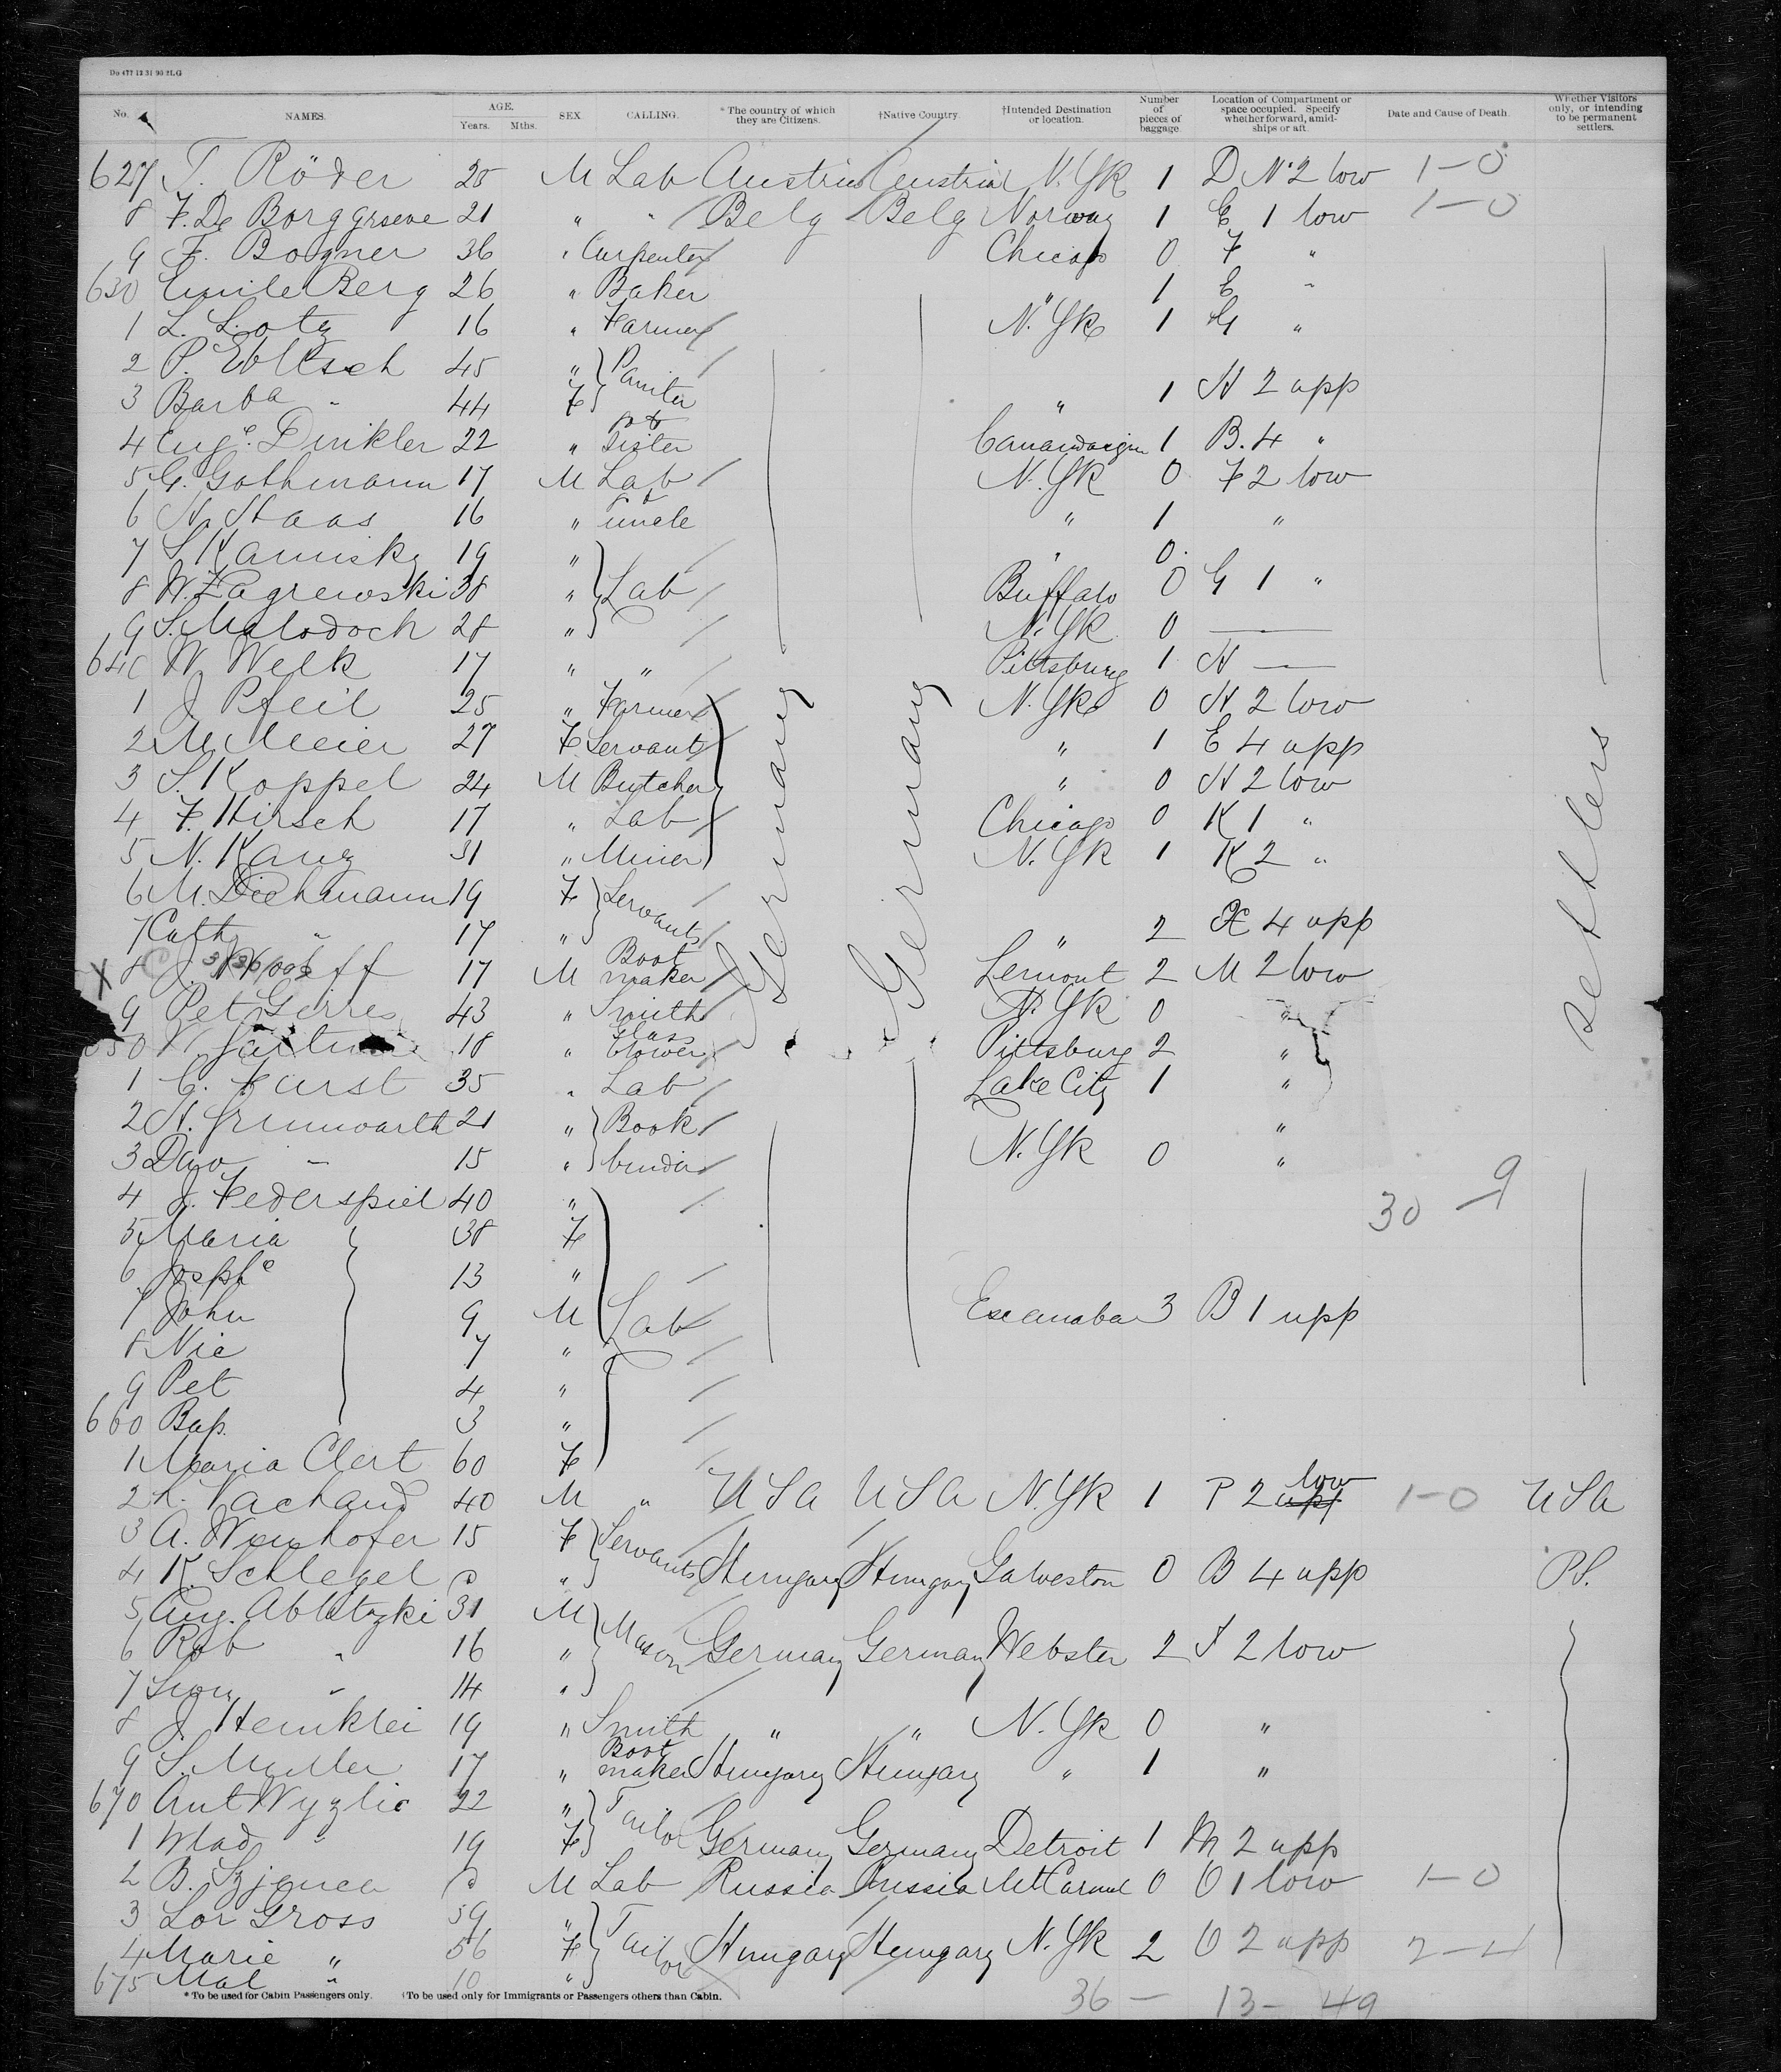 Do 477 12 31 90 2LG
No. NAMES. AGE. Years. Mths. SEX. CALLING. * The country of which they are Citizens. †Native Country. †Intended Destination or location. Number of pieces of baggage. Location of Compartment or space occupied. Specify whether forward, amidships or aft. Date and Cause of Death. Whether Visitors only, or intending to be permanent settlers.
627 T. Röder 25 M Lab Austria Austria N.Yk 1 D No 2 low 1-0
8 F. De Borggraeve 21 " " Belg Belg Norway 1 E 1 low 1-0
9 F. Bogner 36 " Carpenter Chicago 0 F "
630 Emile Berg 26 " Baker " 1 E "
1 L. Lotz 16 " Farmer N.Yk 1 G "
2 P. 45 "
3 Barba " 44 F " 1 H 2 upp
4 Auge. Dinkler 22 " to Sister 1 B. 4 "
5 G. Gothmann 17 M Lab N.Yk 0 F 2 low
6 H. Haas 16 " to uncle " 1 "
7 S. Kaminsky 19 " " 0
8 W. Zagrewski 38 " Lab Buffalo 0 G 1 "
9 S. Malodoch 28 " N.Yk 0
640 W. Welk 17 " " Pittsburg 1 H
1 J. Pfeil 25 " Farmer N.Yk 0 H 2 low
2 M. Meier 27 F Servant " 1 E 4 upp
3 S. Koppel 24 M Butcher " 0 H 2 low
4 F. Hirsch 17 " Lab Chicago 0 K 1 "
5 N. Kanz 31 " Miner N.Yk 1 K 2 "
6 M. Diehlmann 19 F Servants
7 Cath " 17 " " 2 4 upp
8 J. 17 M Boot maker Lemont 2 M 2 low
9 Pet Gerres 43 " Smith N.Yk 0 "
650 18 " Glass blower Pittsburg 2 "
1 C. Furst 35 " Lab Lake City 1 "
2 H. Grunwarth 21 " Book "
3 Dav " 15 " binder N.Yk 0 "
Germany Germany settlers
4 J. Federspiel 40 " 30 - 9
5 Maria 38 F
6 Josphe 13 "
7 John 9 M Lab Escanaba 3 B 1 upp
8 Nic 7 "
9 Pet 4 "
660 Bap. 3 "
1 Maria Clert 60 F
2 L. Vachaud 40 M " USA USA N.Yk 1 P 2 upp low 1-0 USA
3 A. 15 F Servants
4 K. Schlegel " Hungary Hungary Galveston 0 B 4 upp PS.
5 Aug. Ablatzki 31 M
6 Rob " 16 " Mason Germany Germany Webster 2 I 2 low
7 " 14 "
8 J. Hemklei 19 " Smith " " N.Yk 0 "
9 S. Muller 17 " Boot maker Hungary Hungary " 1 "
670 Ant Wyzlic 22 " Tailor
1 Mad " 19 F Germany Germany Detroit 1 M 2 upp
2 B. M Lab Russia Russia Mt Carmel 0 O 1 low 1-0
3 Lor Gross 59 " Tailor
4 Marie " 56 F Hungary Hungary N.Yk 2 O 2 upp 2-4
675 Mal " 10 "
* To be used for Cabin Passengers only. †To be used only for Immigrants or Passengers others than Cabin.
36 - 13 - 49